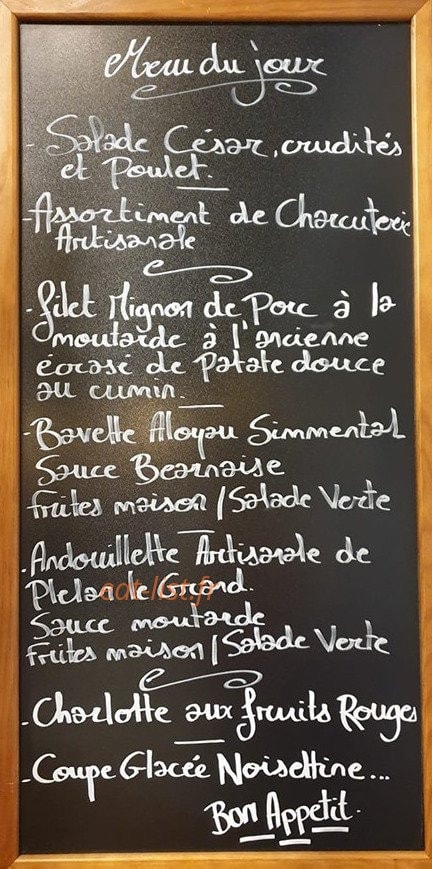 Menu du jour
- Salade César, crudités
et Poulet.
- Assortiment de Charcuterie
Artisanale
- filet Mignon de Porc à la
moutarde à l'ancienne
écrasé de patate douce
au cumin.
- Bavette Aloyau Simmental
Sauce Bearnaise
frites maison / Salade Verte
. Andouillette Artisanale de
Plelan le Grand.
eat-list.fr
Sauce moutarde
frites maison / Salade Verte
- Charlotte aux fruits Rouges
- Coupe Glacée Noisettine...
Bon Appétit.